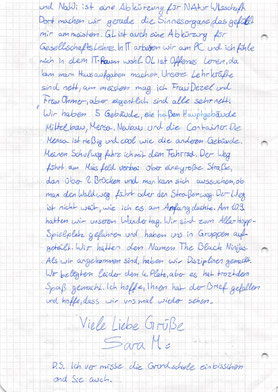 und NaWi ist eine Abkürzung für NAtur WIssenschaft.
Dort machen wir gerade die Sinnesorgane das gefällt
mir am meisten. GL ist auch eine Abkürzung für
GesellschaftsLehre. In IT arbeiten wir am PC und ich fühle
mich in dem IT-Raum wohl. OL ist Offenes Lernen, da
kann man Hausaufgaben machen. Unsere Lehrkräfte
sind nett, am meisten mag ich Frau Dezel und
Frau Ohmer, aber eigentlich sind alle sehr nett.
Wir haben 5 Gebäude, sie heißen Hauptgebäude
Mittelbau, Mensa, Neubau und die Container. Die
Mensa ist riesig und cool wie die anderen Gebäude.
Meinen Schulweg fahre ich mit dem Fahrrad. Der Weg
führt am Maisfeld vorbei über eine große Straße,
dan über 2 Brücken und man kann sich aussuchen, ob
man den Waldweg fährt oder den Straßenweg. Der Weg
ist nicht weit, wie ich es am Anfang dachte. Am
hatten wir unseren Wandertag. Wir sind zum
Spielplatz gefahren und haben uns in Gruppen auf-
geteilt. Wir hatten den Namen The Black Ninjas.
Als wir angekommen sind, haben wir Disziplinen gemacht.
Wir belegten leider den 4. Platz, aber es hat trotzdem
Spaß gemacht. Ich hoffe, Ihnen hat der Brief gefallen
und hoffe, dass wir uns mal wieder sehen.
Viele Liebe Grüße
Sara M.
P.S. Ich vermisse die Grundschule ein bisschen
und Sie auch.